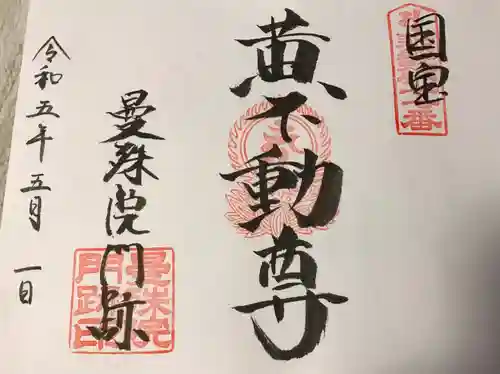 国宝
黄不動尊
曼殊院門跡
令和五年五月一日
曼殊院
門跡印